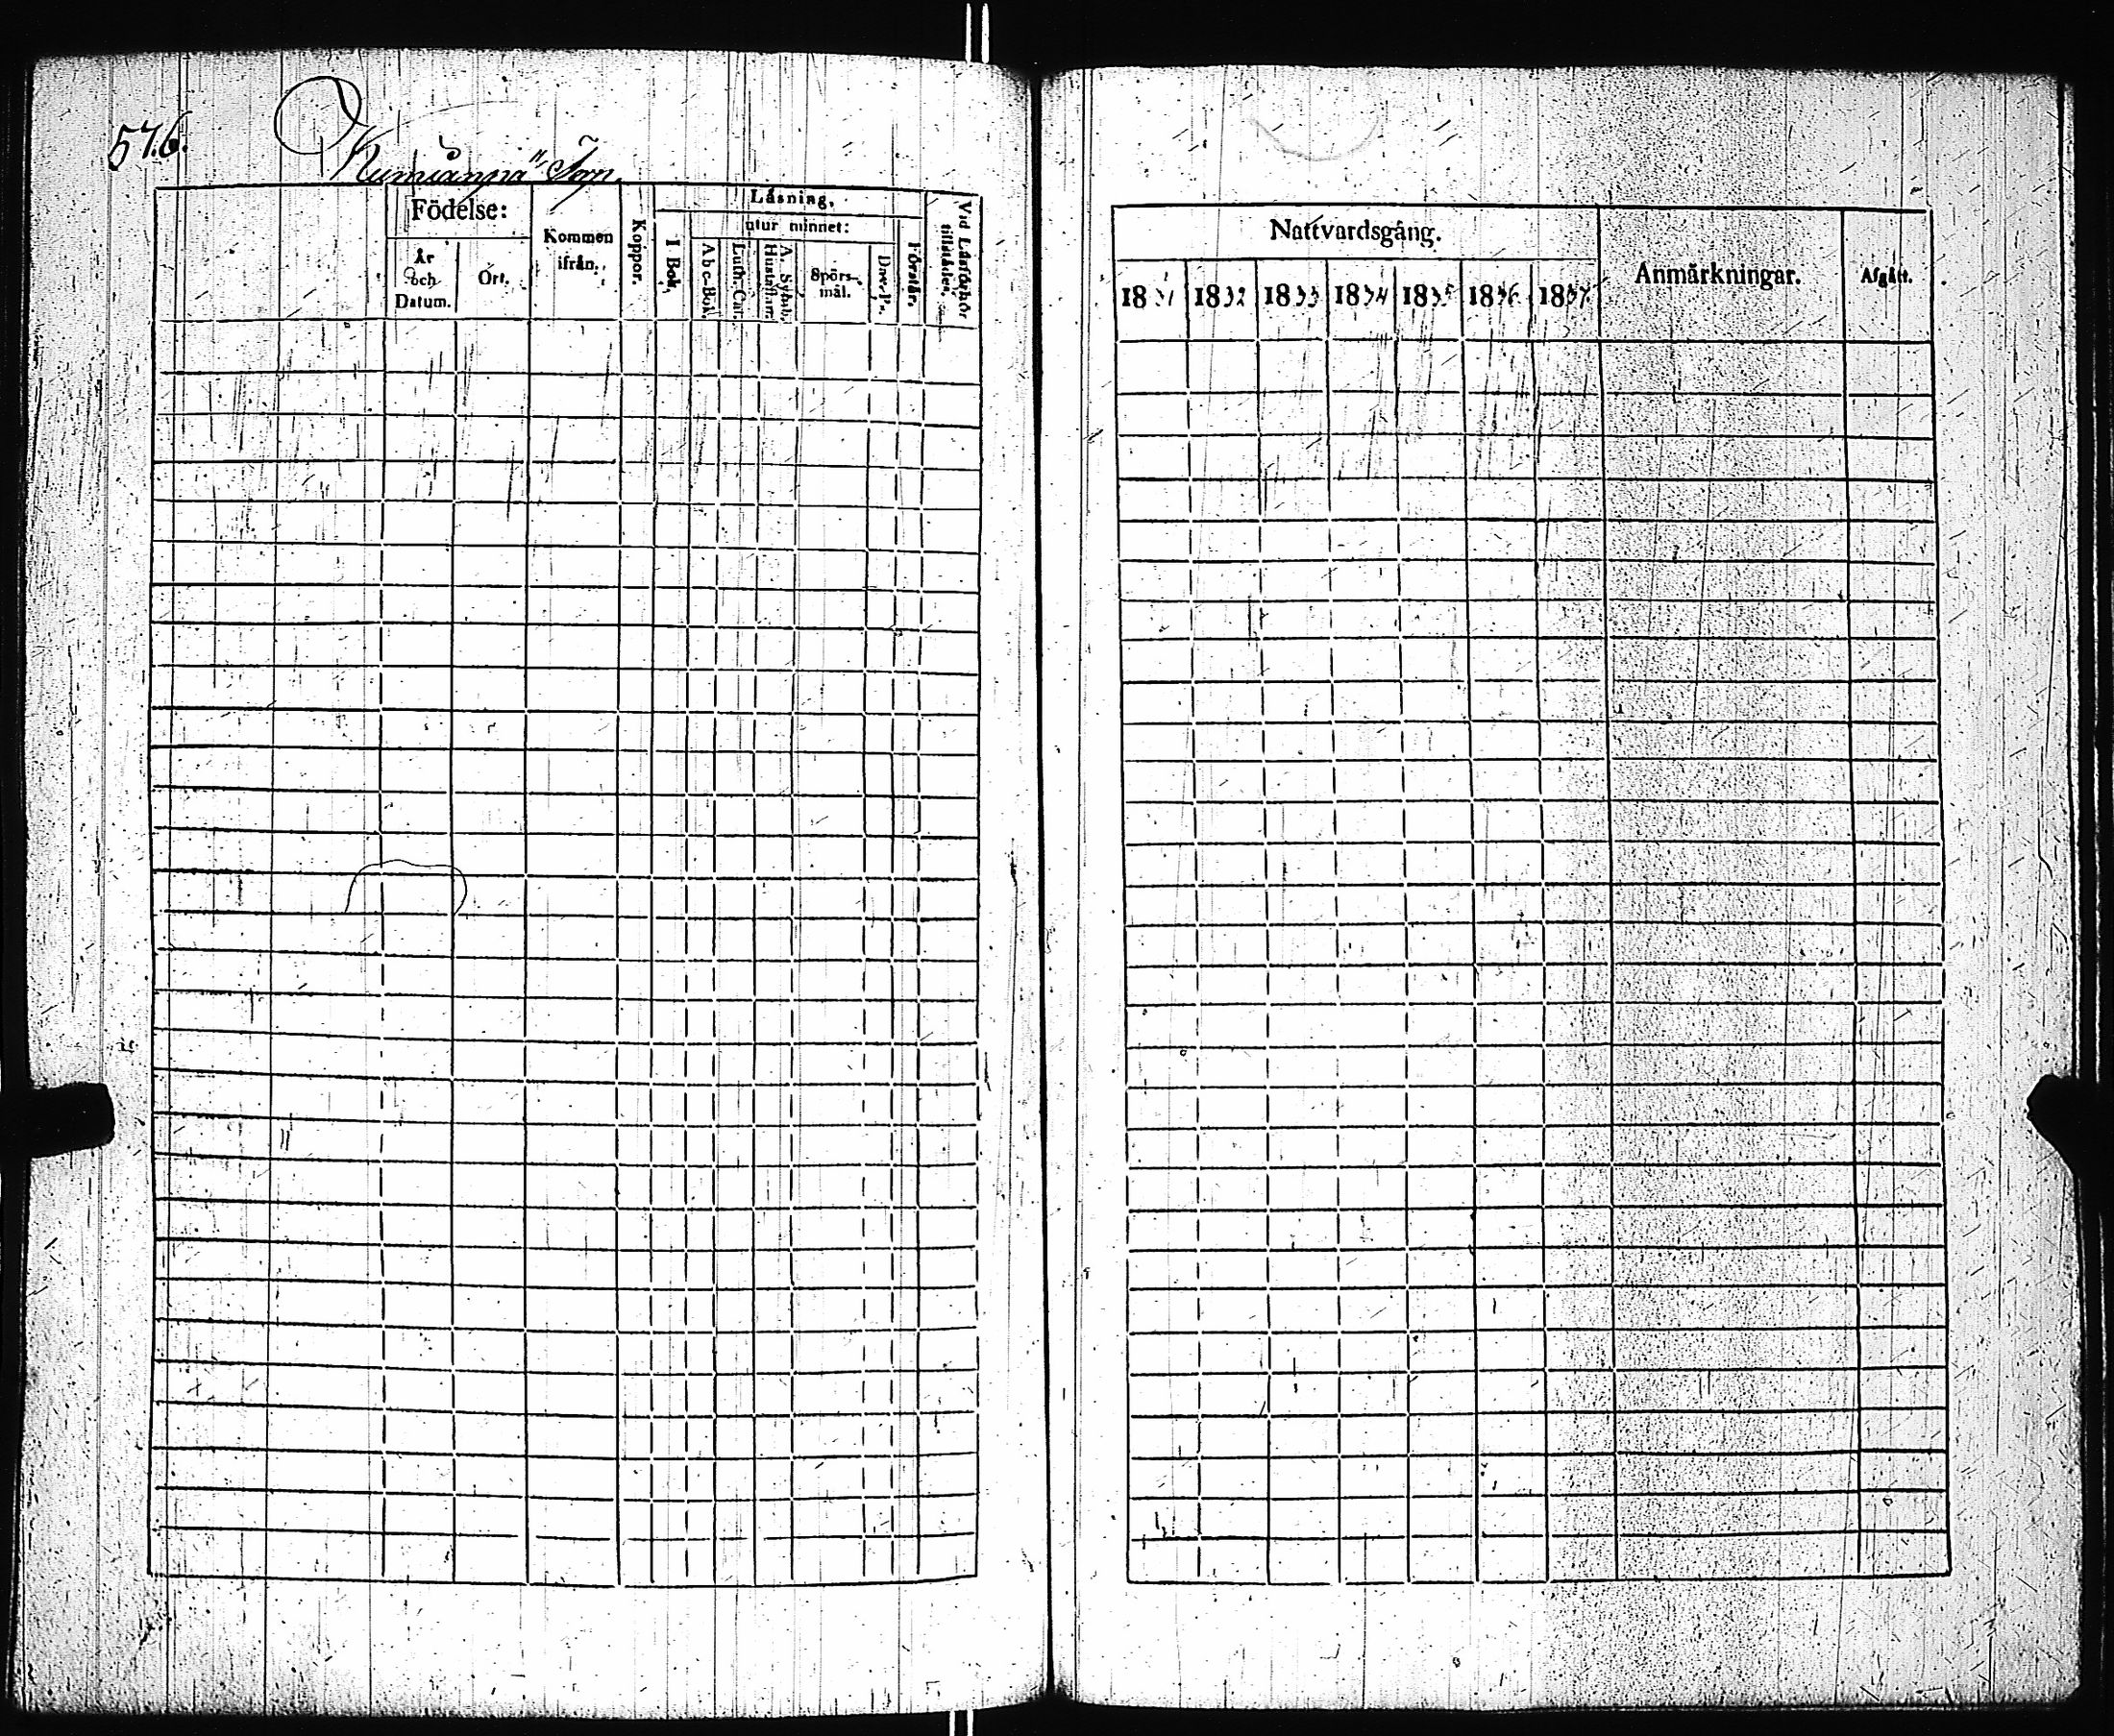 576.
Födelse:
År och Datum.
Ort.
Kommen ifrån.
Koppor.
Läsning.
I Bok.
utur minnet:
Abc-Bok.
Luth. Cat.
A. Symb. Hustafl.
Spörsmål.
Förstår.
Vid Läsförhör tillstädes.
Nattvardsgång.
1831 1832 1833 1834 1835 1836 1837
Anmärkningar.
Afgått.